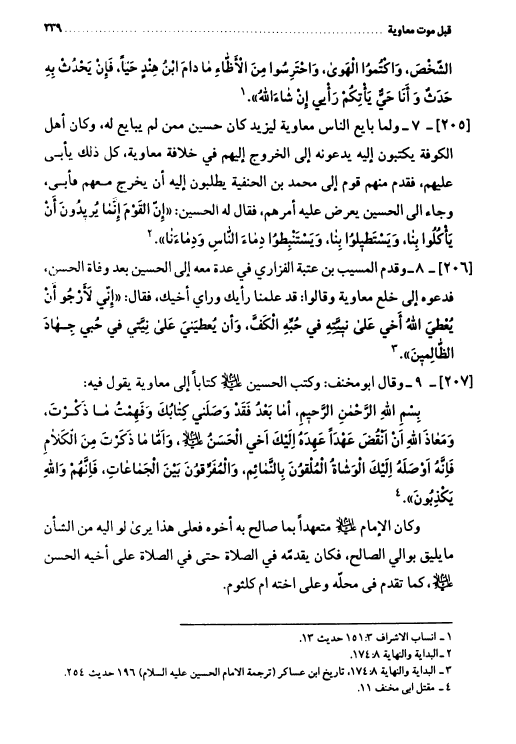 قبل موت معاوية ........................................................ ٢٣٩
الشَّخْصَ، وَاكْتُمُوا الْهَوىٰ، وَاحْتَرِسُوا مِنَ الْأَظَّاءِ مٰا دامَ ابْنُ هِنْدٍ حَيّاً، فَإِنْ يَحْدُثْ بِهِ
حَدَثٌ وَ أَنَا حَيٌّ يَأْتِكُمْ رَأْيِي إِنْ شَاءَاللّٰهُ».١
[٢٠٥] - ٧ ـ ولما بايع الناس معاوية ليزيد كان حسين ممن لم يبايع له، وكان أهل
الكوفة يكتبون إليه يدعونه إلى الخروج إليهم في خلافة معاوية، كل ذلك يأبـى
عليهم، فقدم منهم قوم إلى محمد بن الحنفية يطلبون إليه أن يخرج مـعهم فأبـى،
وجاء الى الحسين يعرض عليه أمرهم، فقال له الحسين: «إِنَّ الْقَوْمَ إِنَّمَا يُرِيدُونَ أَنْ
يَأْكُلُوا بِنٰا، وَيَسْتَطِيلُوا بِنٰا، وَيَسْتَنْبِطُوا دِمٰاءَ النّٰاسِ وَدِمٰاءَنٰا».٢
[٢٠٦] - ٨ ـ وقدم المسيب بن عتبة الفزاري في عدة معه إلى الحسين بعد وفاة الحسن،
فدعوه إلى خلع معاوية وقالوا: قد علمنا رأيك وراي أخيك، فقال: «إِنّي لَأَرْجُو أَنْ
يُعْطِيَ اللّٰهُ أَخي عَلىٰ نِيَّتِهِ في حُبِّهِ الْكَفَّ، وَأن يُعطيَنِيَ عَلىٰ نِيَّتي في حُبي جِـهٰادَ
الظّٰالِمِينَ».٣
[٢٠٧] - ٩ ـ وقال ابومخنف: وكتب الحسين ﷷ كتاباً إلى معاوية يقول فيه:
بِسْمِ اللّٰهِ الرَّحْمٰنِ الرَّحيمِ، أمٰا بَعْدُ فَقَدْ وَصَلَني كِتٰابُكَ وَفَهِمْتُ مٰـا ذَكَـرْتَ،
وَمَعٰاذَ اللهِ أنْ أنْقُضَ عَهْداً عَهِدَهُ إلَيْكَ اَخي الْحَسَنُ ﷷ، وَاَمّٰا مٰا ذَكَرْتَ مِنَ الْكَلاٰمِ
فَاِنَّهُ اَوْصَلَهُ اِلَيْكَ الْوُشٰاةُ الْمُلْقُونَ بِالنَّمٰائِمِ، وَالْمُفَرِّقُونَ بَيْنَ الْجَمٰاعٰاتِ، فَاِنَّهُمْ وَاللهِ
يَكْذِبُونَ».٤
وكان الإمام ﷷ متعهداً بما صالح به أخوه فعلى هذا يرىٰ لو اليه من الشأن
مايليق بوالي الصالح، فكان يقدمّه في الصلاة حتى في الصلاة على أخيه الحسن
ﷷ، كما تقدم فى محلّه وعلى اخته ام كلثوم.
١ ـ انساب الاشراف ٣:١٥١ حديث ١٣.
٢ ـ البداية والنهاية ٨:١٧٤.
٣ ـ البداية والنهاية ٨:١٧٤، تاريخ ابن عساكر (ترجمة الامام الحسين عليه السلام) ١٩٦ حديث ٢٥٤.
٤ ـ مقتل ابى مخنف ١١.